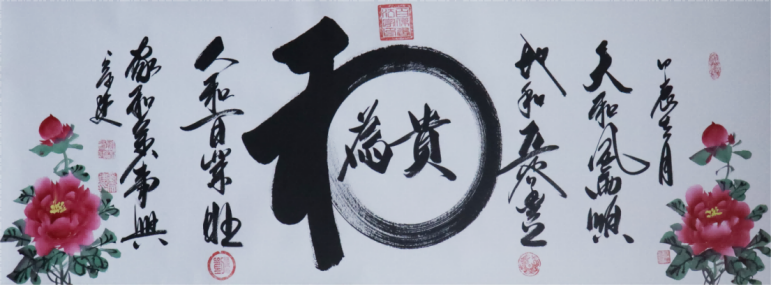 甲辰月
天和風雨順
地和五穀豐
和為貴
人和百業旺
家和萬事興